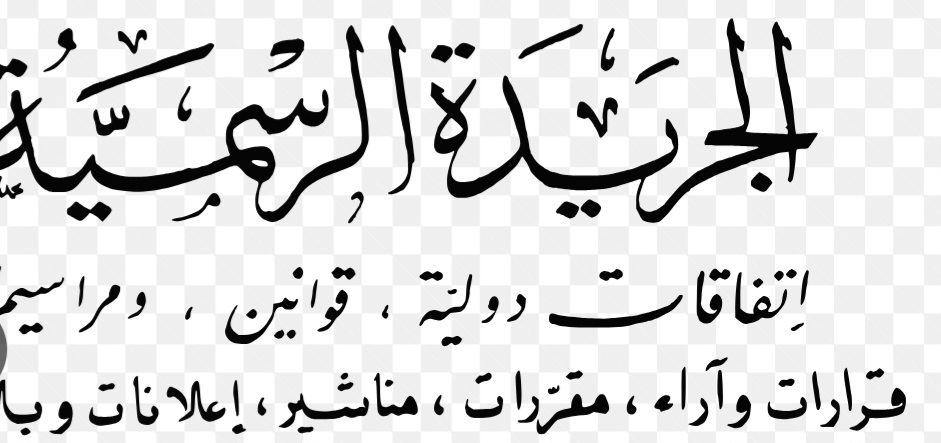 الجريدة الرسمية
إتفاقات دولية ، قوانين ، ومراسيم
قرارات وآراء ، مقررات ، مناشير ، إعلانات و